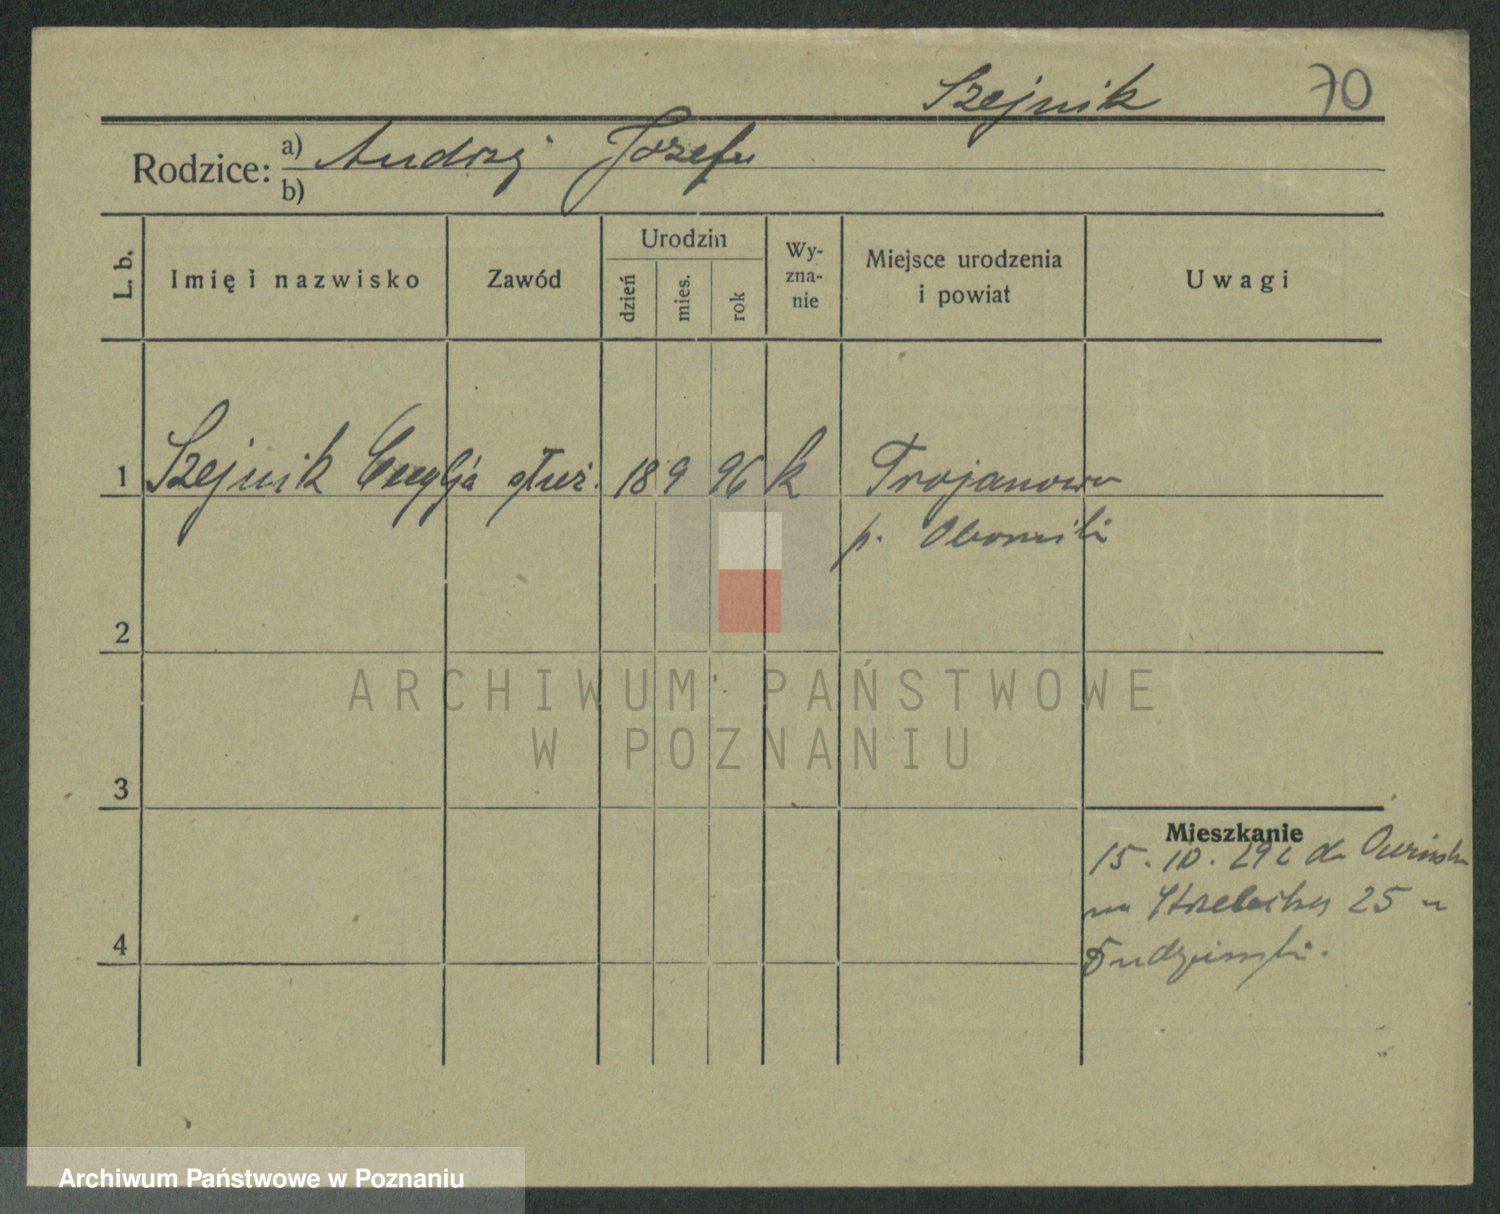 Szejnik 70
Rodzice: a) Andrzej Józefa
b)
L. b. Imię i nazwisko Zawód Urodzin dzień mies. rok Wy-zna-nie Miejsce urodzenia i powiat Uwagi
1 Szejnik służ. 18 9 96 k Trojanowo
p. Oborniki
2
ARCHIWUM PAŃSTWOWE
W POZNANIU
3
Mieszkanie
15. 10. do
na 25 u
4
Archiwum Państwowe w Poznaniu